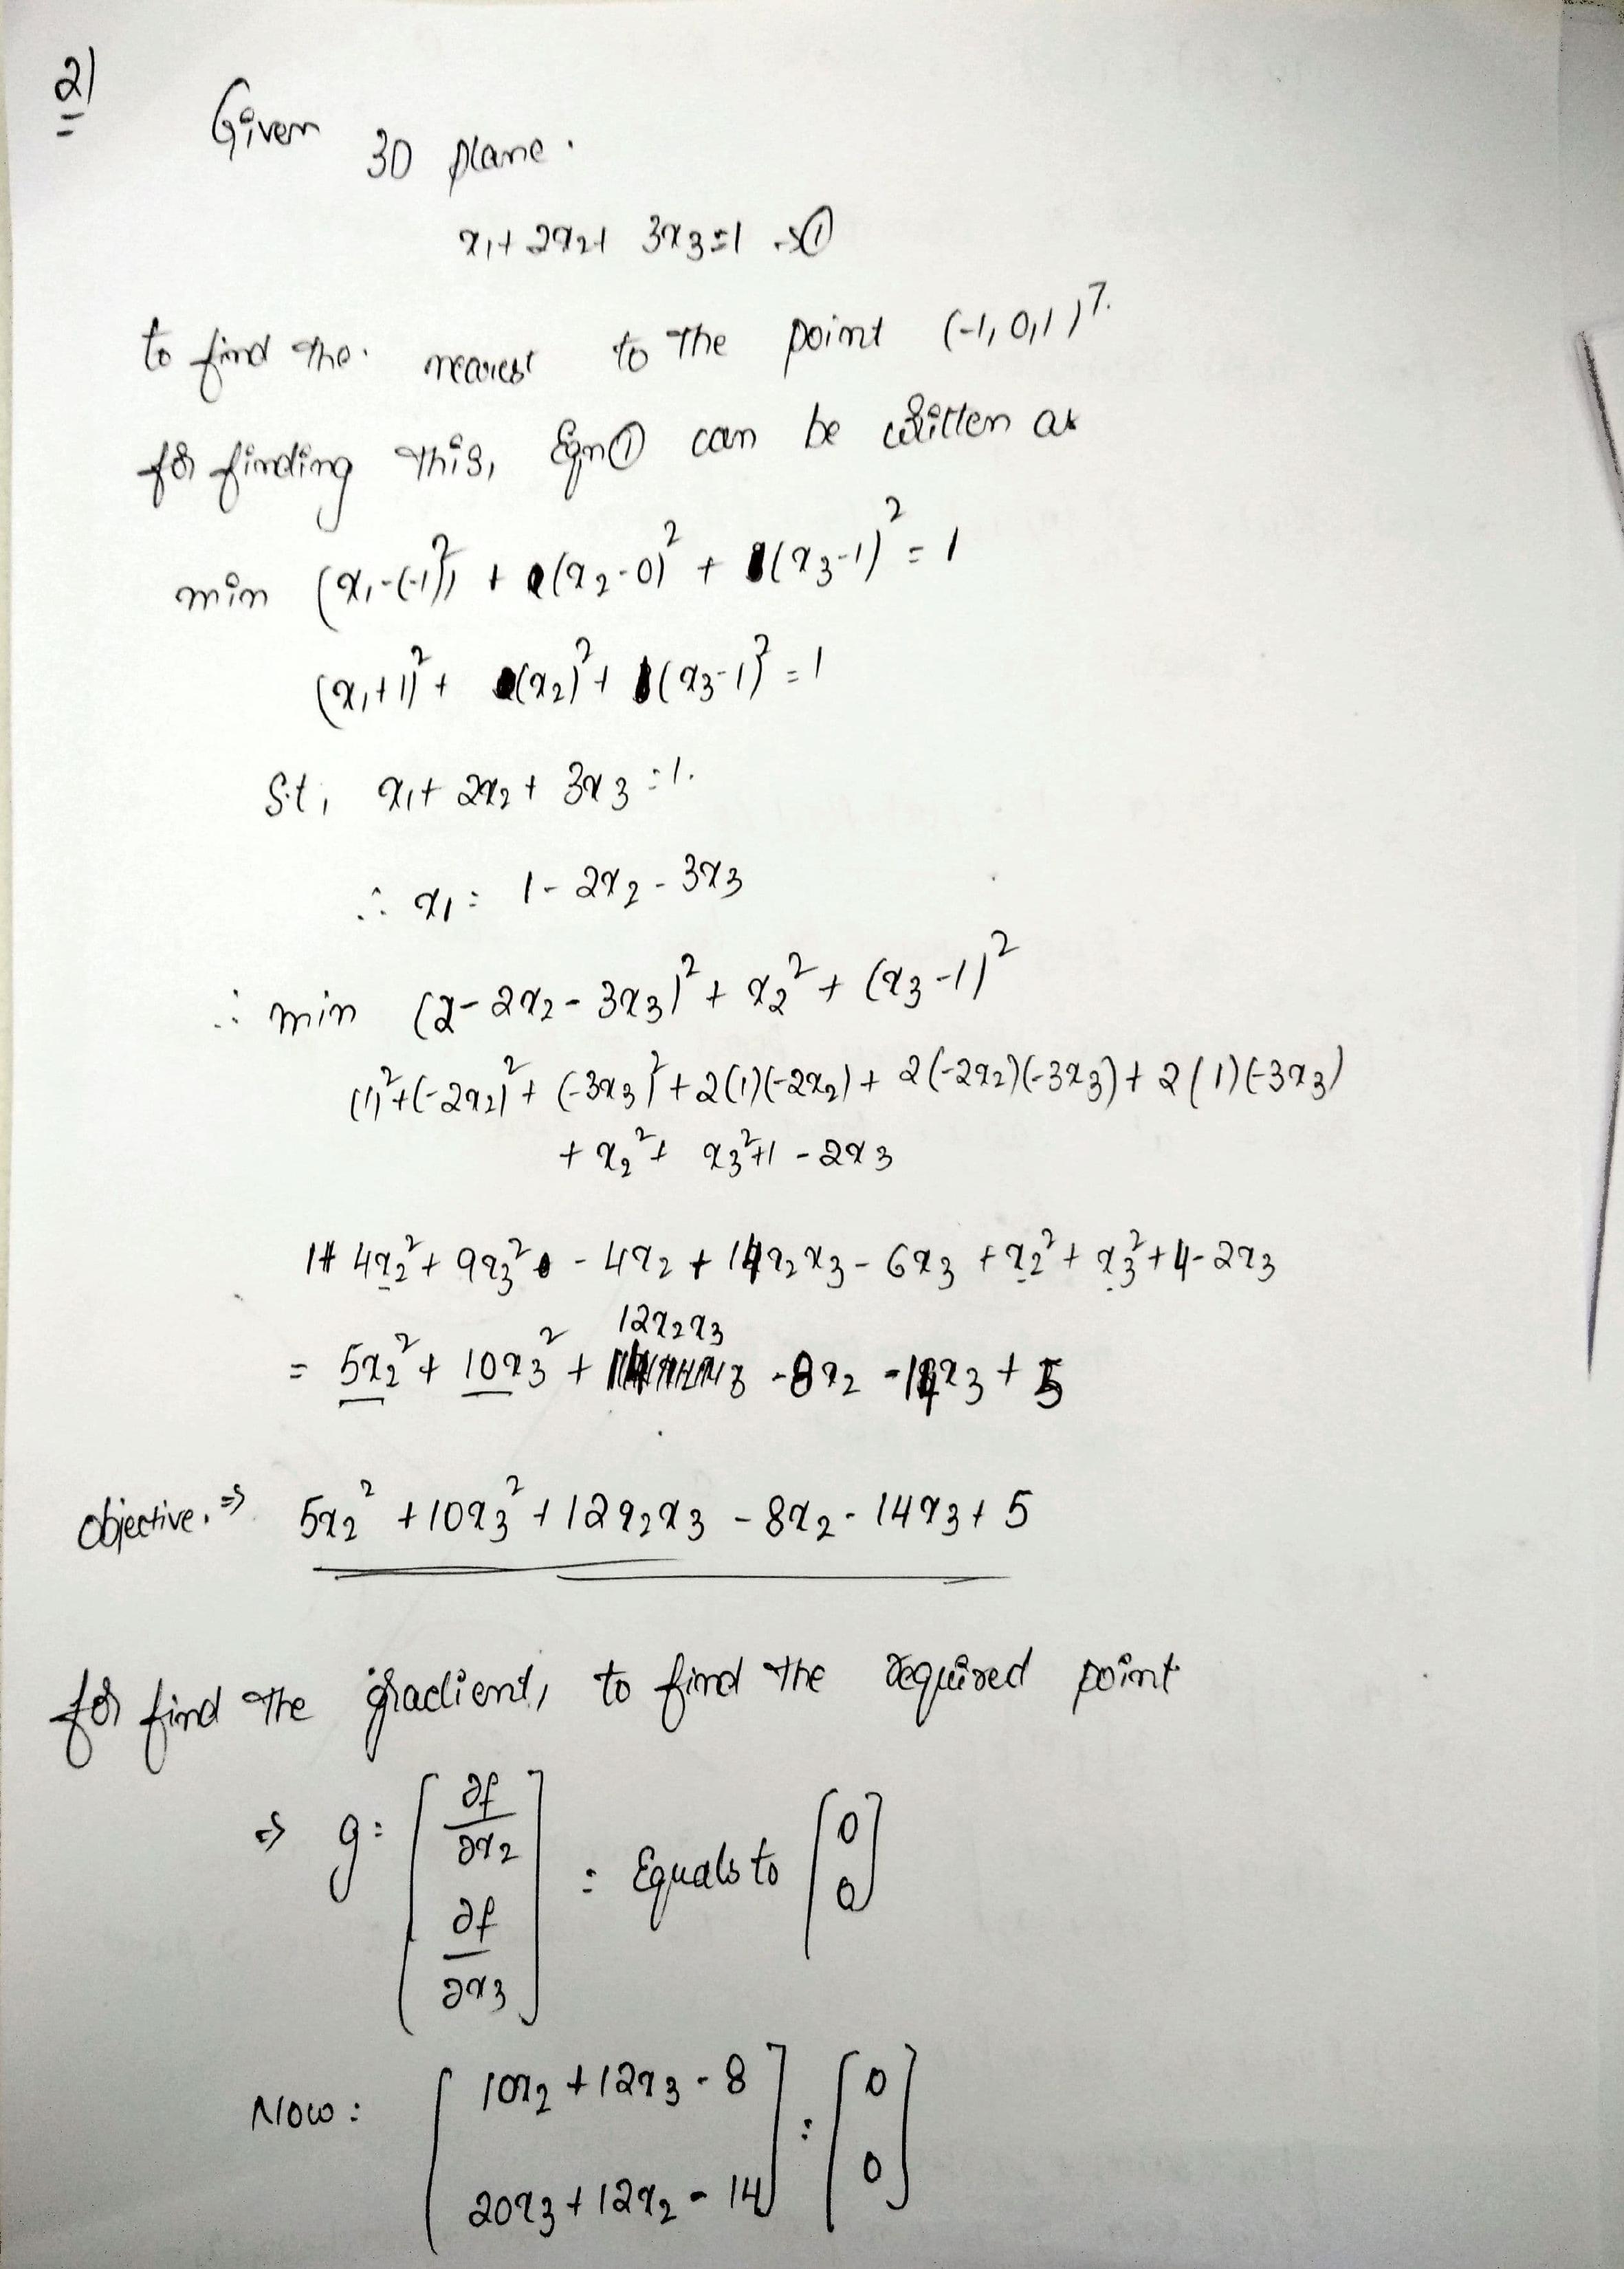 2)
Given 3D plane.
x1 + 2x2 + 3x3 = 1 → ①
to find the. nearest to the point (-1, 0, 1)ᵀ.
for finding this, Eqn ① can be written as
min (x1-(-1))² + (x2-0)² + (x3-1)² = 1
(x1+1)² + (x2)² + (x3-1)² = 1
S.t, x1 + 2x2 + 3x3 = 1.
∴ x1 = 1 - 2x2 - 3x3
∴ min (2 - 2x2 - 3x3)² + x2² + (x3-1)²
(1)² + (-2x2)² + (-3x3)² + 2(1)(-2x2) + 2(-2x2)(-3x3) + 2(1)(-3x3)
+ x2² + x3² + 1 - 2x3
1 + 4x2² + 9x3² - 4x2 + 12x2x3 - 6x3 + x2² + x3² + 4 - 2x3
12x2x3
= 5x2² + 10x3² + - 8x2 - 14x3 + 5
Objective. ⇒ 5x2² + 10x3² + 12x2x3 - 8x2 - 14x3 + 5
for find the gradient, to find the required point
⇒ g = [∂f/∂x2 ∂f/∂x3] = Equals to [0 0]
Now: [10x2 + 12x3 - 8] = [0
20x3 + 12x2 - 14] 0]